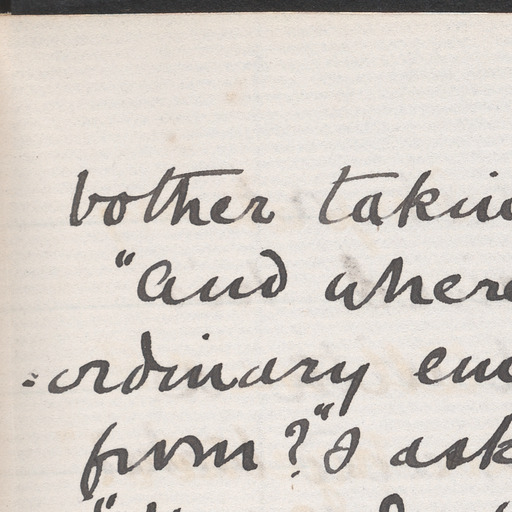 bother takin
"And where
=ordinary en
from?" I ask